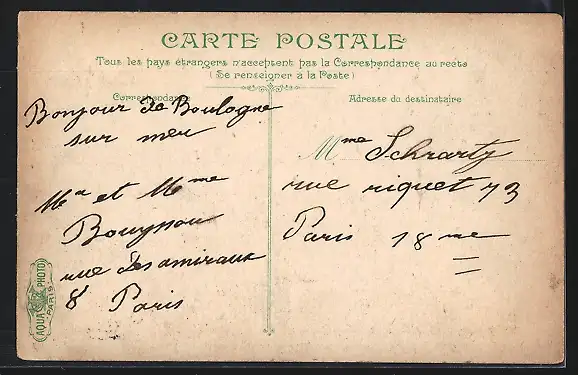 CARTE POSTALE
Tous les pays étrangers n'acceptent pas la Correspondance au recto
(Se renseigner à la Poste)
Correspondance
Bonjour de Boulogne
sur mer
Mr et Mme
rue des amiraux
8 Paris
Adresse du destinataire
Mme Schrartz
rue riquet 73
Paris 18 me
AQUA PHOTO
PARIS